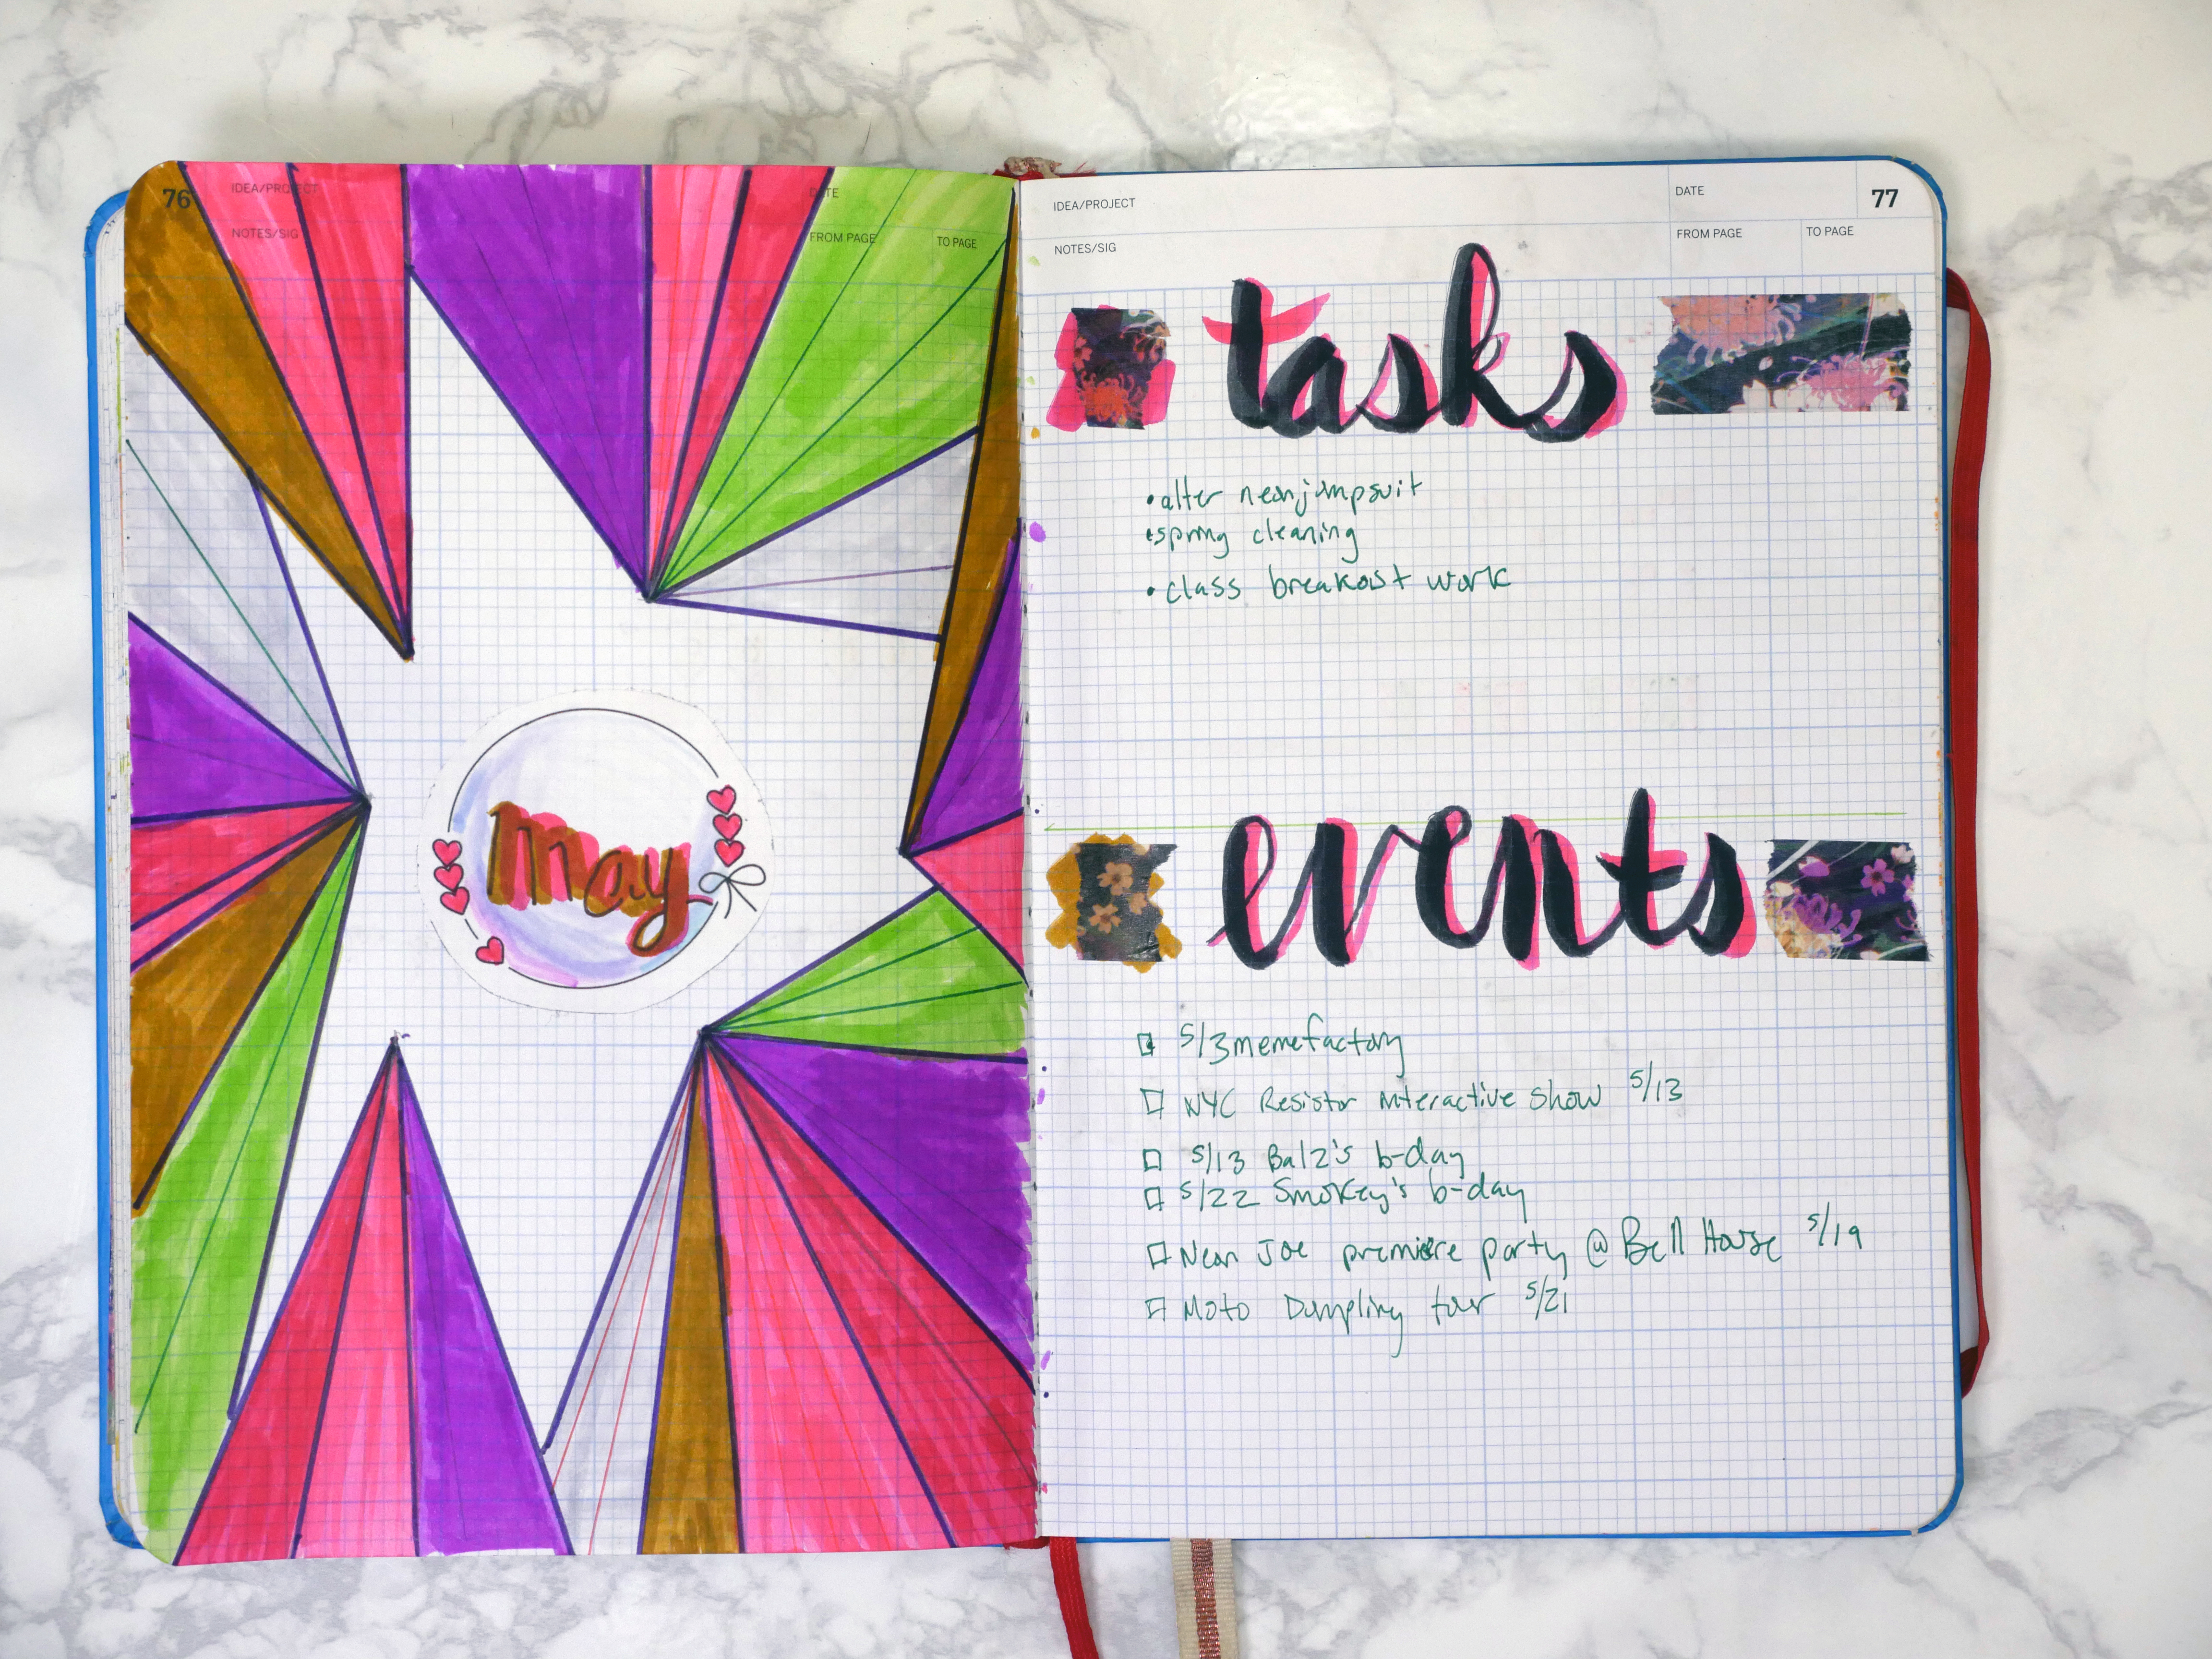 76
IDEA/PROJECT
DATE
NOTES/SIG
FROM PAGE
TO PAGE
may
IDEA/PROJECT
DATE
77
NOTES/SIG
FROM PAGE
TO PAGE
tasks
• alter neon jumpsuit
• spring cleaning
• class breakout work
events
5/3 memefactory
NYC Resistor interactive show 5/13
5/13 Balz's b-day
5/22 Smokey's b-day
Neon Joe premiere party @ Bell House 5/19
Moto Dumpling tour 5/21